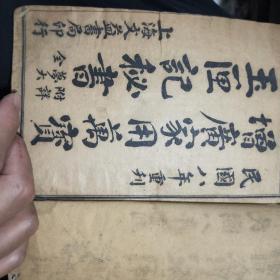 民國八年重刊
增廣家用萬寶
玉匣記秘書
附詳夢大全
上海文益書局印行